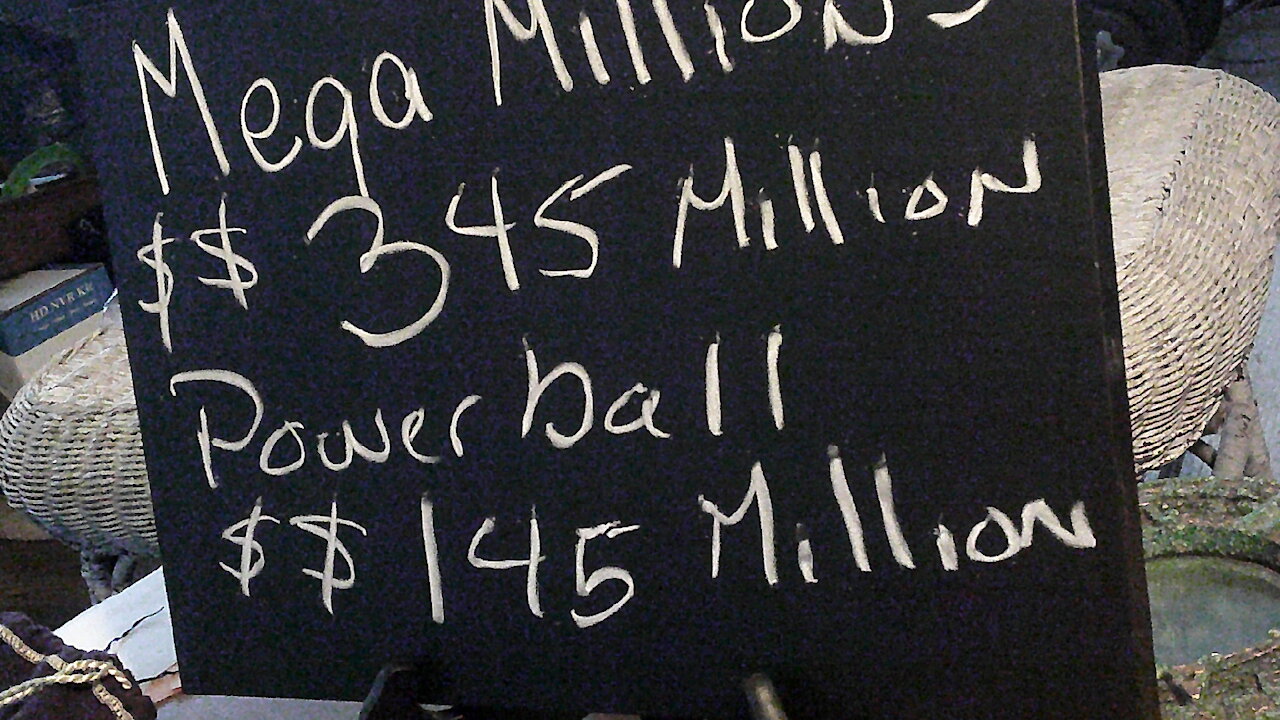 Mega Millions
$$ 345 Million
Powerball
$$ 145 Million
HD NVR Kit